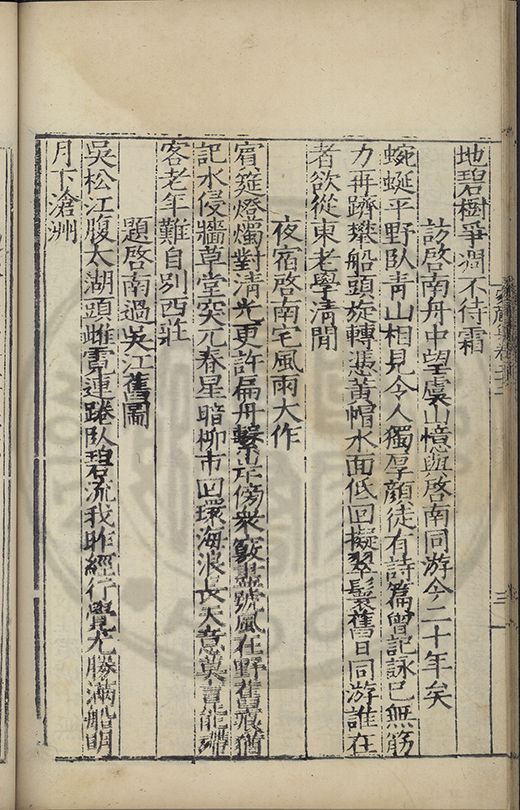 地碧樹爭凋不待霜
訪啓南舟中望虞山憶與啓南同游今二十年矣
蜿蜒平野臥青山相見令人獨厚顏徒有詩篇曾記詠已無筋
力再躋攀船頭旋轉憑黃帽水面低回擬翠鬟舊日同游誰在
者欲從東老學清閒
夜宿啓南宅風雨大作
筵燈燭對清光更許扁舟繫岸傍衆竅盡號風在野舊痕猶
記水侵牆草堂突兀春星暗柳市回環海浪長天意莫言能滯
客老年難自別西莊
題啓南過吳江舊圖
吳松江腹太湖頭雌霓連蜷臥碧流我昨經行覺尤勝滿船明
月下滄洲
三